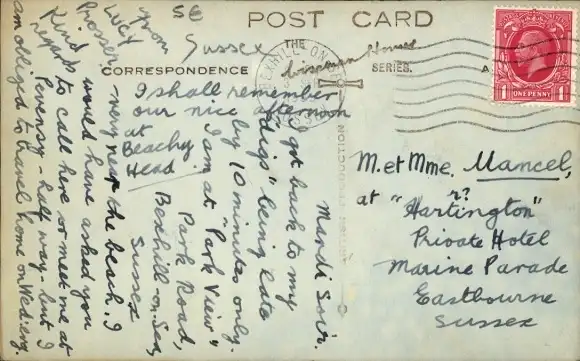 POST CARD
CORRESPONDENCE
THE
SERIES.
ONE PENNY
BEXHILL ON SEA
Sussex
I shall remember
our nice afternoon
at
Beachy
Head
Mardi Soir.
I got back to my
"digs" being late
by 10 minutes only.
I am at "Park View"
Park Road,
Bexhill-on-Sea,
Sussex
very near the beach. I
would have asked you
to call here or meet me at
Pevensey - half way - but I
am obliged to travel home on Wed: evg.
Kind
regards
from
M. et Mme. Mancel,
at "Hartington" r?
Private Hotel
Marine Parade
Eastbourne
Sussex